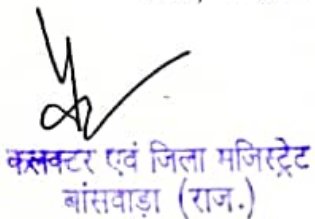 कलक्टर एवं जिला मजिस्ट्रेट
बांसवाड़ा (राज.)